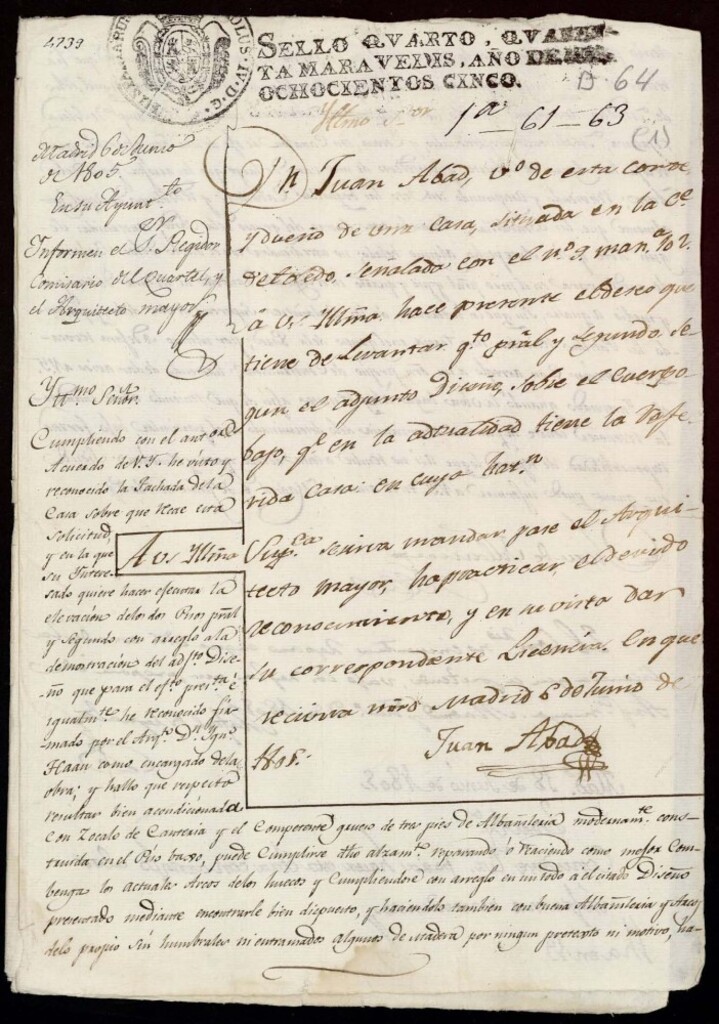 1739
CAROLUS · IV · D · G ·
SELLO QVARTO, QVAREN-
TA MARAVEDIS, AÑO DE MIL
OCHOCIENTOS CINCO.
D 64
Yltmo Sor
1ª - 61 - 63
(1)
Madrid 6 de Junio
de 1805.
En su Ayunt.to
Informen el Sr. Regidor
Comisario del Quartel, y
el Arquitecto mayor
Dn Juan Abad, vº de esta corte,
y dueño de una casa, situada en la Ce
de toledo, señalada con el nº 9. manª 102.
á Vs Yltma hace presente el deseo que
tiene de Levantar qto pral y segundo se-
gun el adjunto Diseño, sobre el Cuerpo
bajo, qe en la actualidad tiene la Refe-
rida Casa: en cuya atenn
A Vs Yltma
Suppca se sirva mandar pase el Arqui-
tecto mayor, ha practicar el devido
reconocimiento, y en su vista dar
la correspondiente Licencia. En que
recivira mrd Madrid 6 de Junio de
1805.
Juan Abad
Yltmo Señor.
Cumpliendo con el antor
Acuerdo de V.I. he visto y
reconocido la Fachada de la
Casa sobre que recae esta
solicitud,
y en la que
su Intere-
sado quiere hacer efectuar la
elevación de los dos Pisos pral
y Segundo con arreglo a la
demostración del adjto Dise-
ño que para el efto preste é
igualmte he reconocido fir-
mado por el Arqto Dn Ygno
Haan como encargado de la
obra; y hallo que respecto
resultar bien acondicionada
con Zocalo de Canteria y el Competente grueso de tres pies de Albañileria modernamte cons-
truida en el Piso baxo, puede Cumplirse dho alzamto reparando ó haciendo como mejor Com-
benga los actuales Arcos de los huecos y Cumpliendose con arreglo en un todo á el citado Diseño
presentado mediante encontrarle bien dispuesto, y haciendolo tambien con buena Albañileria y Arcos
de lo propio sin humbrales ni entramados algunos de Madera por ningun pretexto ni motivo, ha-